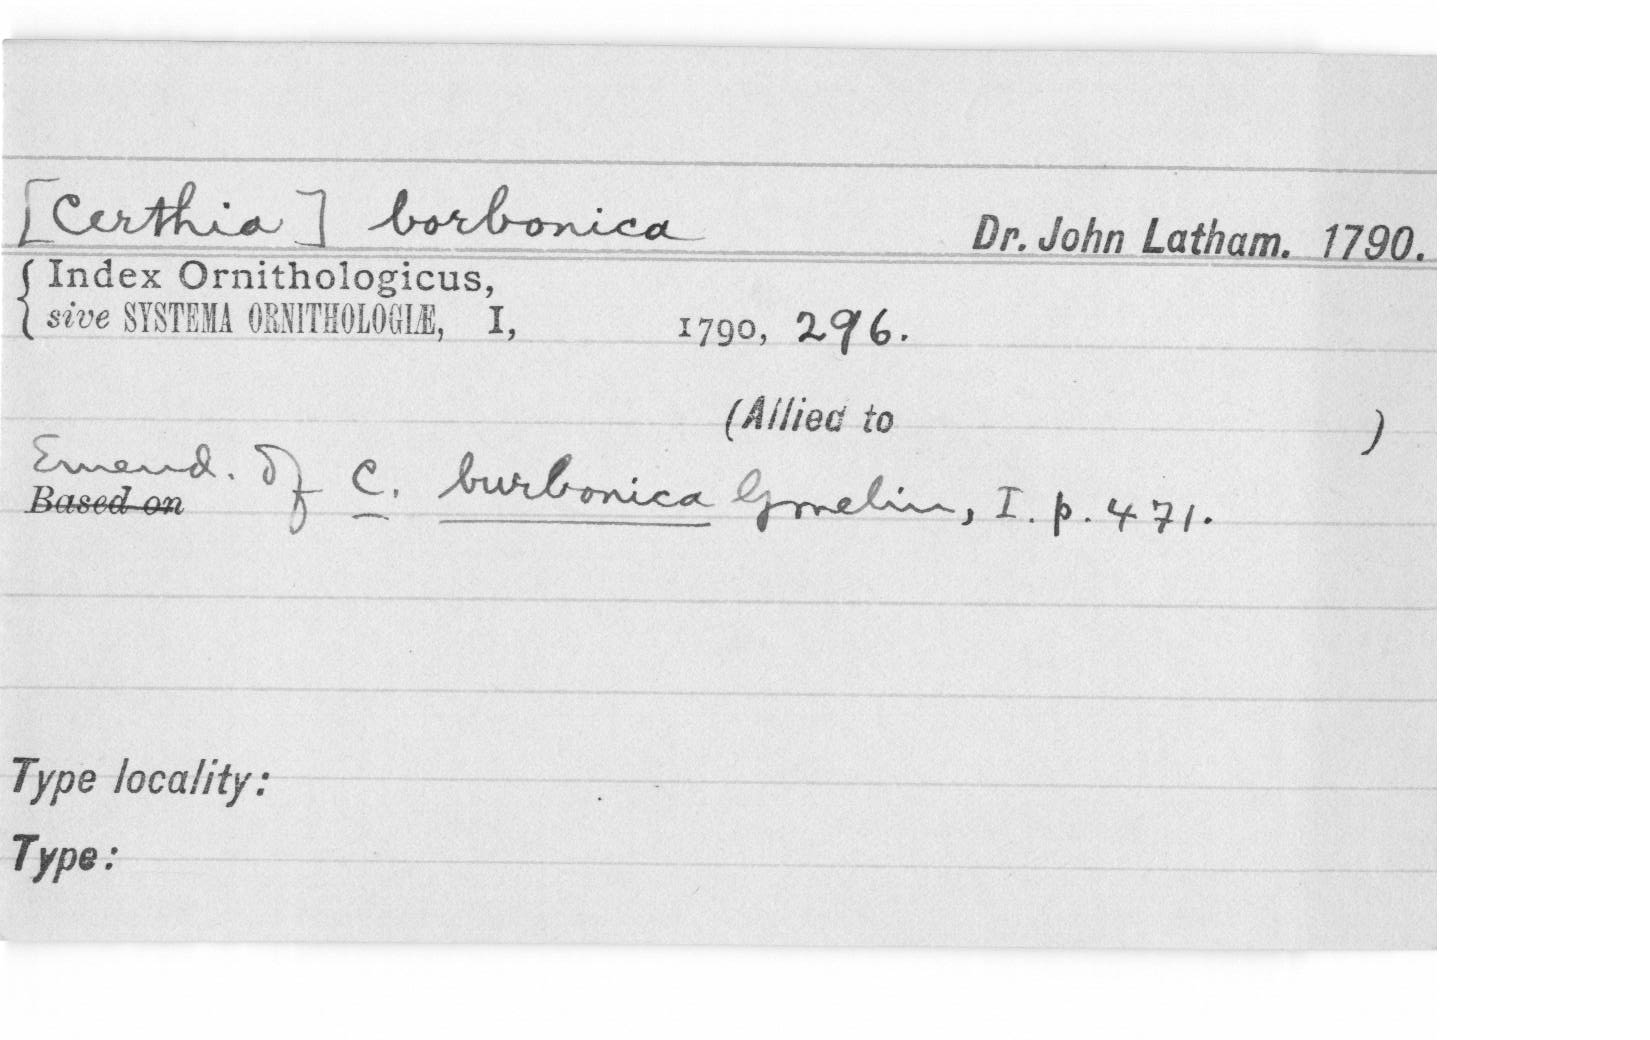 [Certhia] borbonica Dr. John Latham. 1790.
{ Index Ornithologicus,
sive SYSTEMA ORNITHOLOGIÆ, I, 1790, 296.
(Allied to )
Emend. of C. burbonica Gmelin, I. p. 471.
Based on
Type locality:
Type: